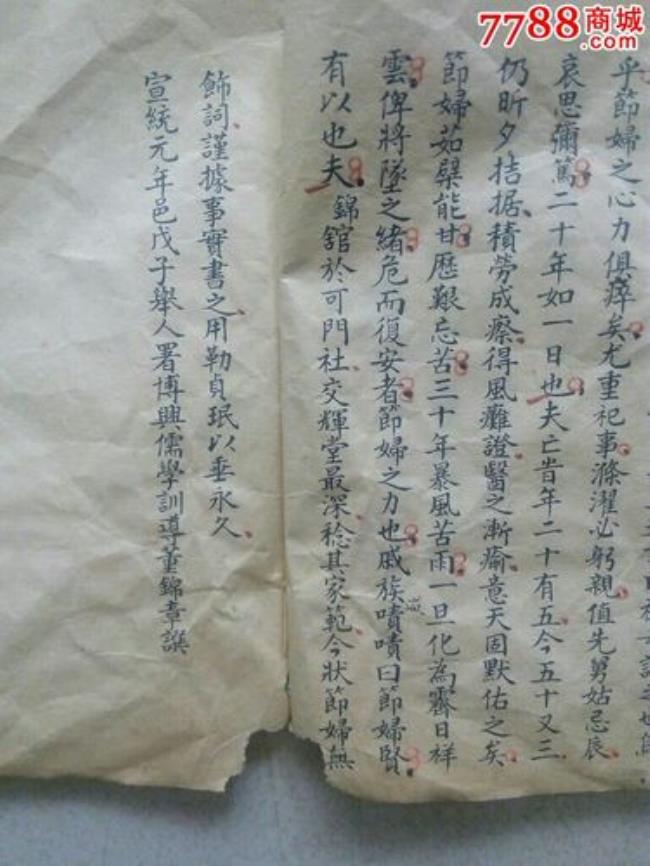 7788商城
乎節婦之心力俱瘁矣尤重祀事滌濯必躬親值先舅姑忌辰
哀思彌篤二十年如一日也夫亡旹年二十有五今五十又三
仍昕夕拮据積勞成瘵得風癱證醫之漸瘉意天固默佑之矣
節婦茹櫱能甘歷艱忘苦三十年暴風苦雨一旦化為霽日祥
雲俾將墜之緒危而復安者節婦之力也戚族嘖嘖曰節婦賢
有以也夫錦舘於可門社交輝堂最深稔其家範今狀節婦無
飾詞謹據事實書之用勒貞珉以垂永久
宣統元年邑戊子舉人署博興儒學訓導董錦章譔